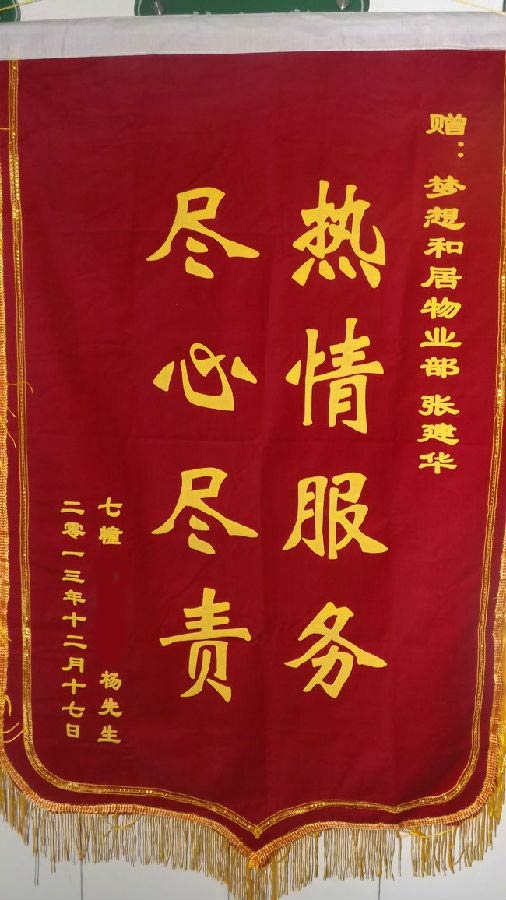 赠：梦想和居物业部 张建华
热情服务
尽心尽责
七幢 杨先生
二零一三年十二月十七日